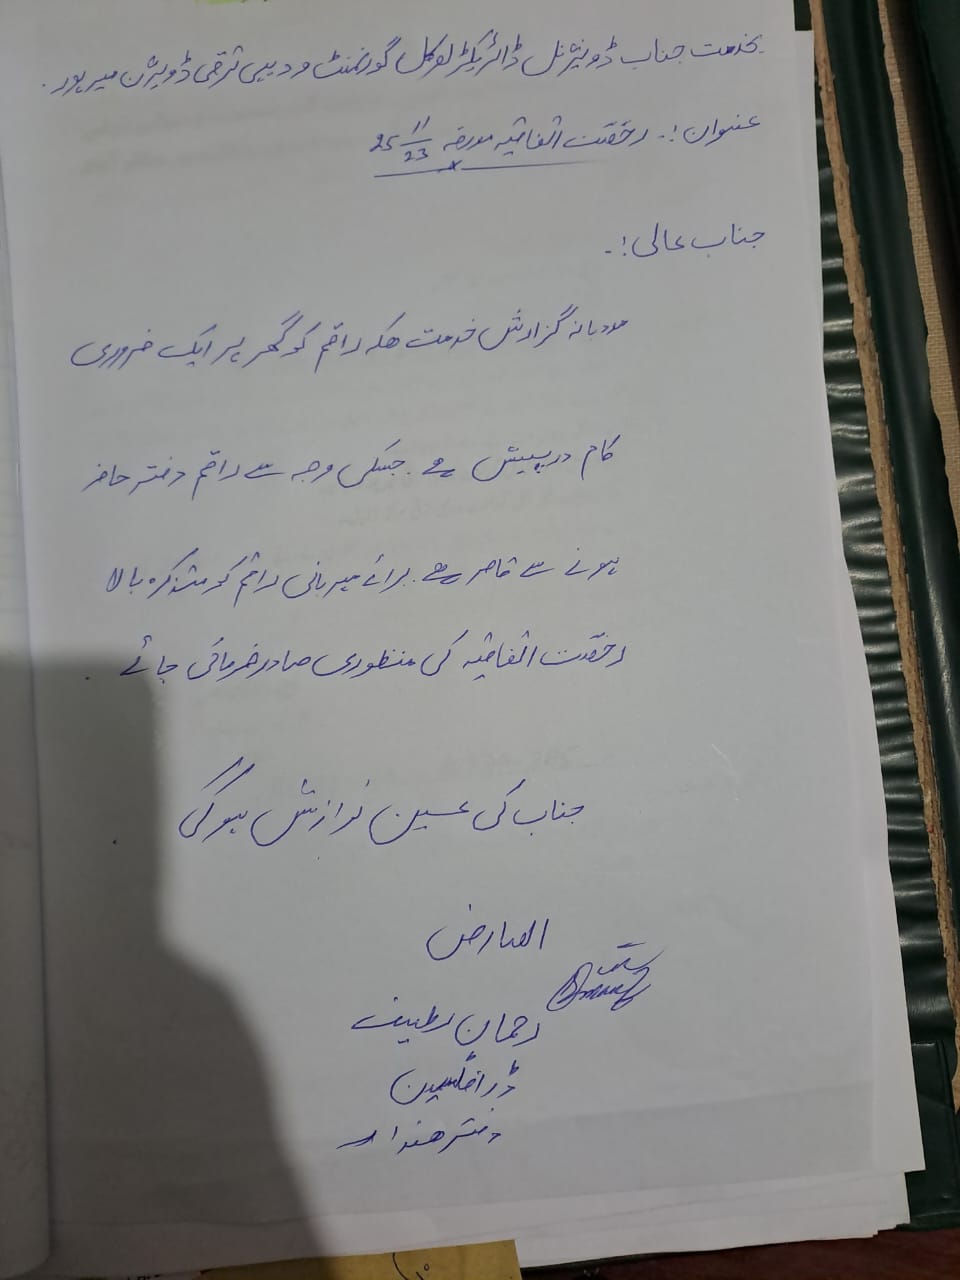 بخدمت جناب ڈویژنل ڈائریکٹر لوکل گورنمنٹ و دیہی ترقی ڈویژن میرپور۔
عنوان:۔ رخصت اتفاقیہ مورخہ 23/11 25
جناب عالی!۔
مودبانہ گزارش خدمت ھیکہ راقم کو گھر پر ایک ضروری
کام درپیش ہے۔ جسکی وجہ سے راقم دفتر حاضر
ہونے سے قاصر ہے۔ برائے مہربانی راقم کو متذکرہ بالا
رخصت اتفاقیہ کی منظوری صادر فرمائی جائے۔
جناب کی عین نوازش ہوگی۔
العارض
رحمان لطیف
ڈرافٹسمین
دفتر ھذا